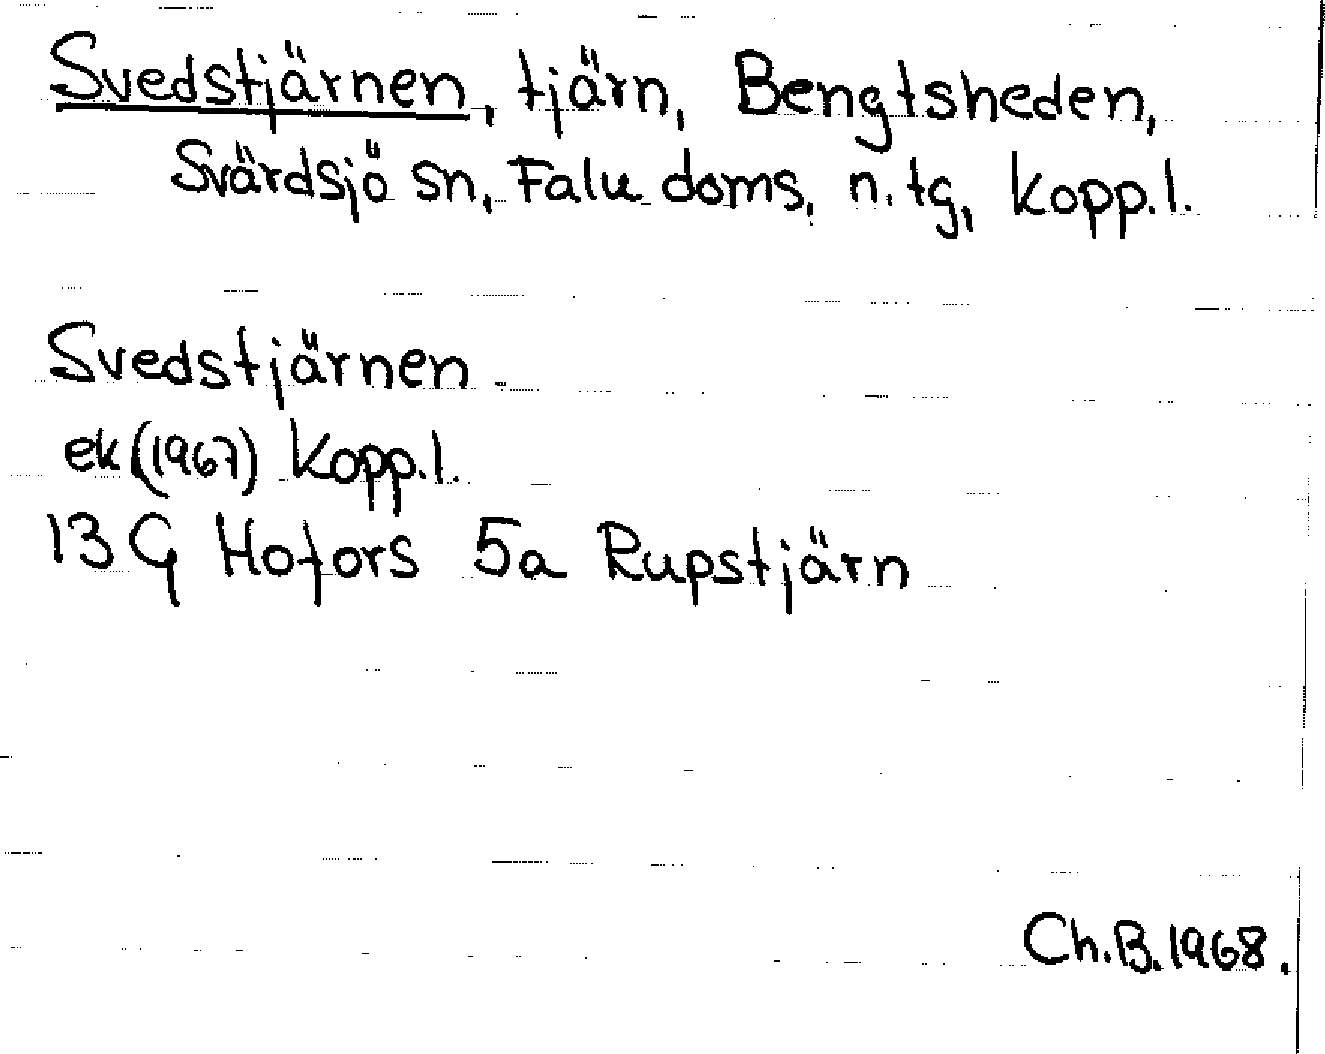 Svedstjärnen, tjärn, Bengtsheden,
Svärdsjö sn, Falu doms, n. tg, Kopp.l.
Svedstjärnen
ek (1967) Kopp.l.
13 G Hofors 5a Rupstjärn
Ch.B.1968.